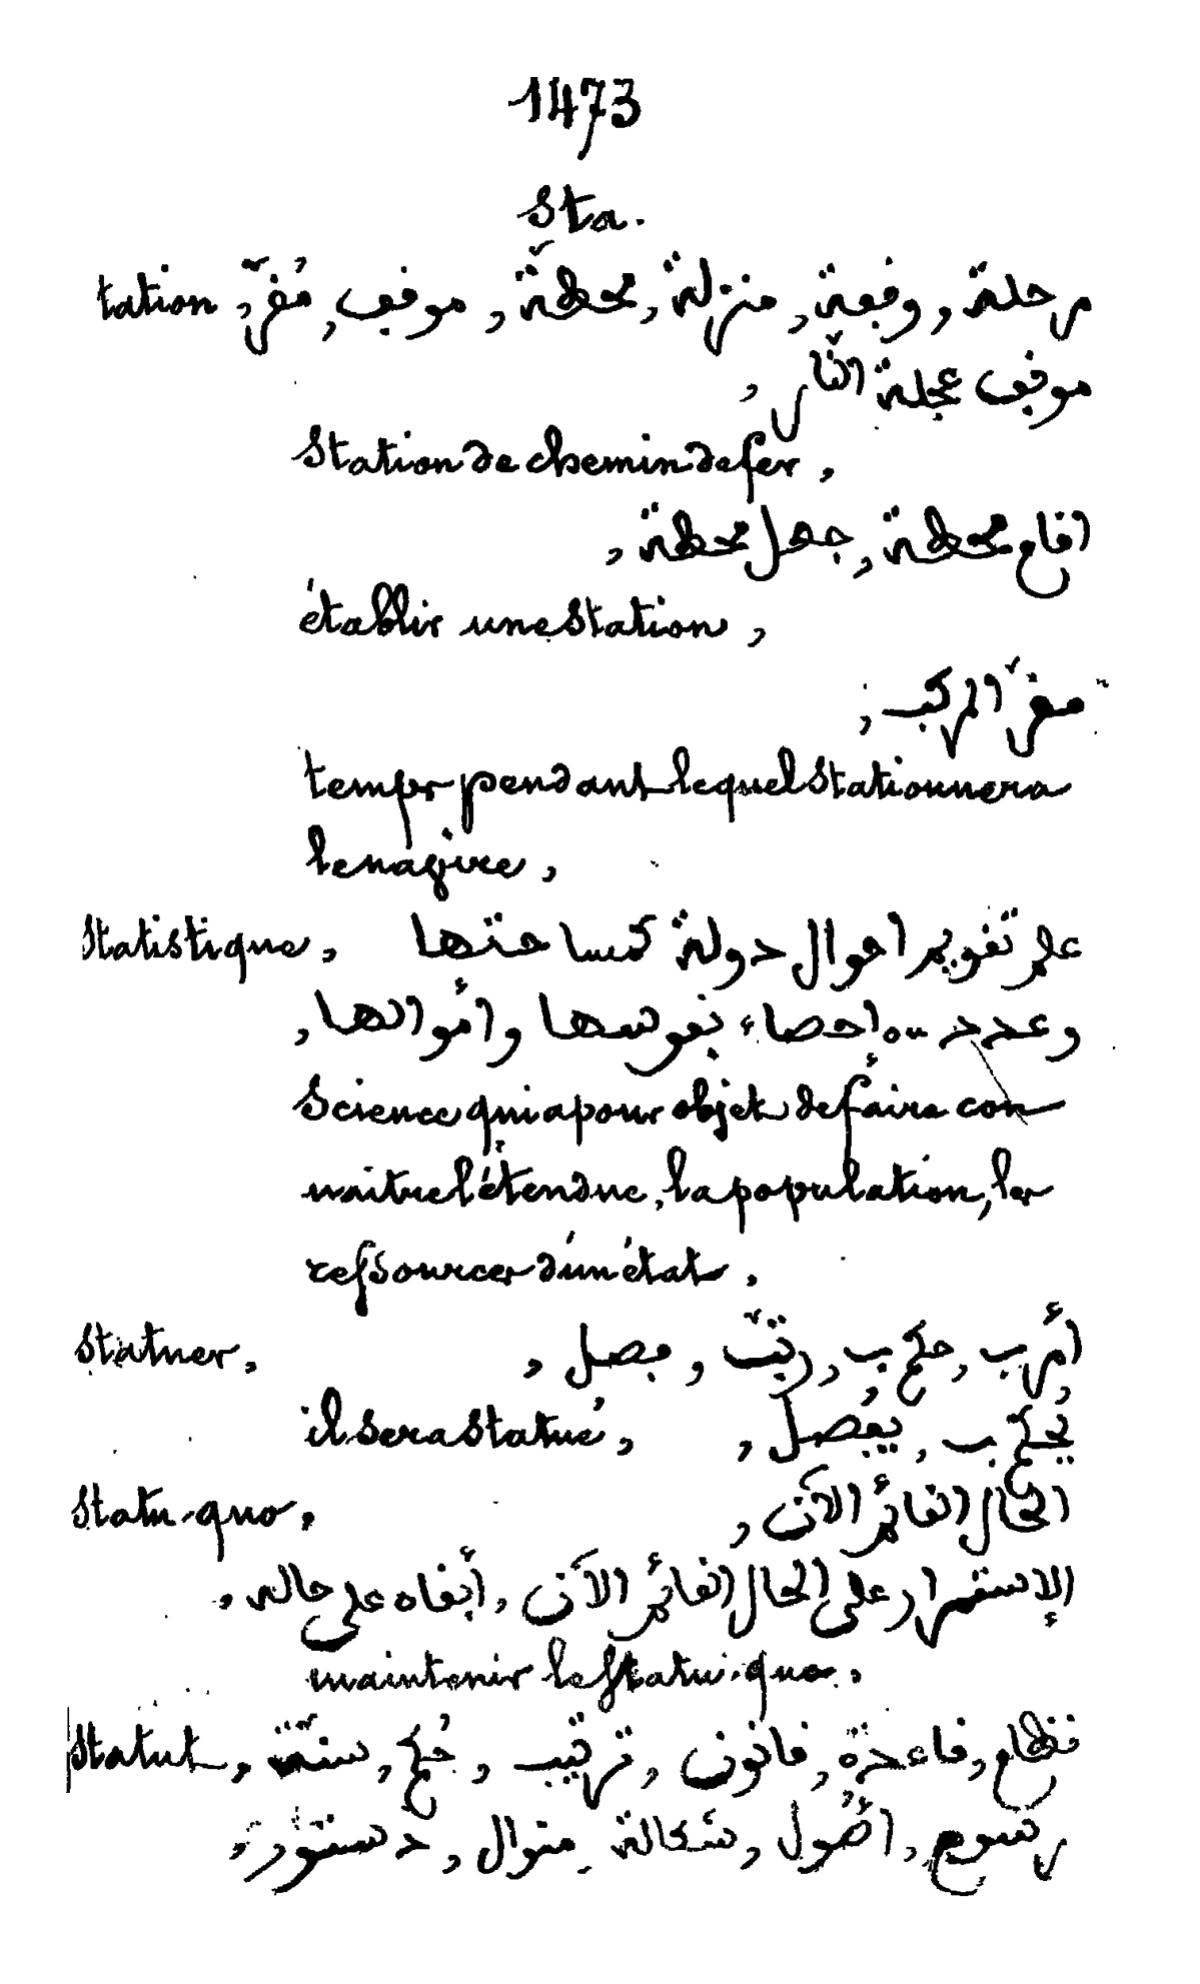 1473
Sta.
tation مرحلة, وقفة, منزلة, محطّة, موقف, مُقرّ,
موقف عجلة النّار,
Station de chemin de fer,
اقام محطة, جعل محطة,
établir une Station,
مقرّ المركب,
temps pendant lequel Stationnera
le navire,
Statistique, علم تقويم احوال دولة كمساحتها
وعدد او احصاء نفوسها وأموالها,
Science qui a pour objet de faire con
naitre l'étendue, la population, les
ressources d'un état.
Statuer, أمر ب, حكم ب, رتّب, فصل,
il sera Statué, يُحكم ب, يُفصل,
Statu-quo, الحال القائم الآن,
الإستمرار على الحال القائم الآن, أبقاه على حاله,
maintenir le Statu-quo.
Statut, نظام, قاعدة, قانون, ترتيب, حُكم, سنّة,
رسوم, أُصُول, شكالة, منوال, دستور,